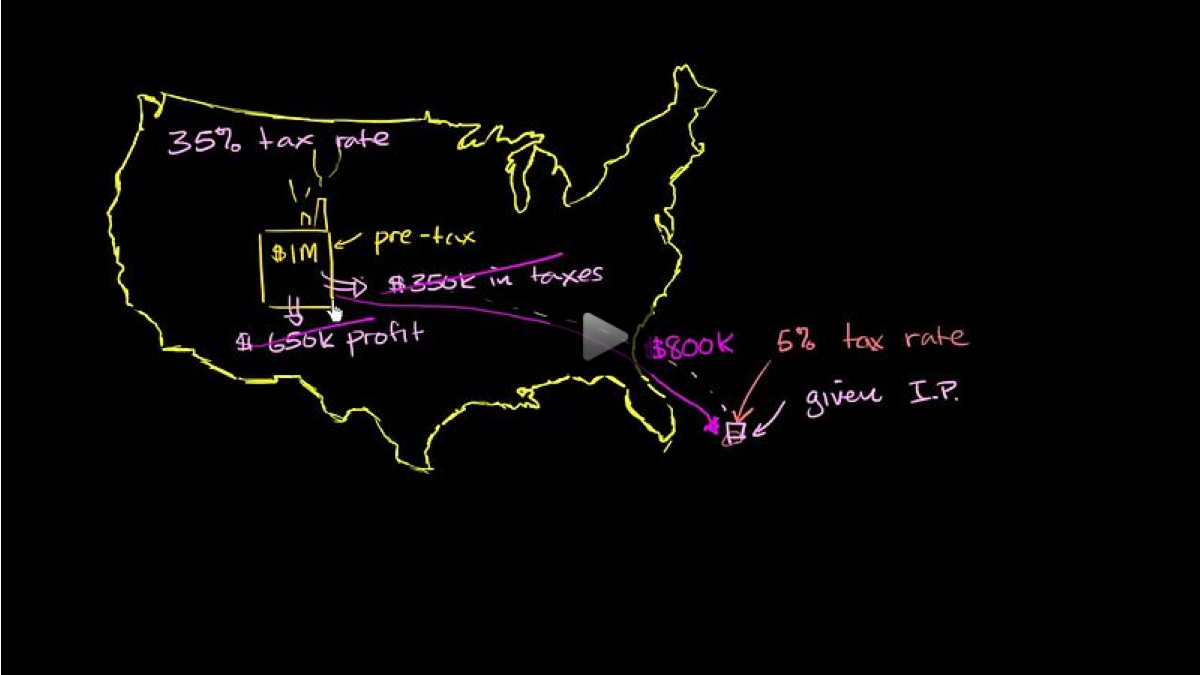 35% tax rate
$1M
pre-tax
$350k in taxes
$650k profit
$800K
5% tax rate
given I.P.